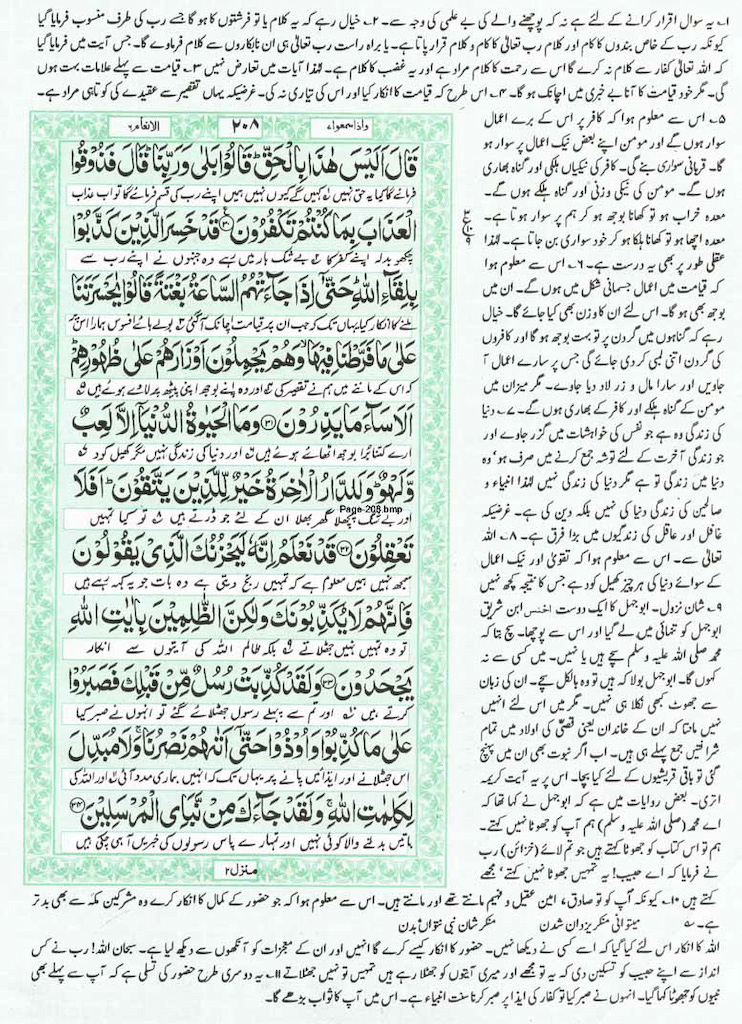 ۱۔ یہ سوال اقرار کرانے کے لئے ہے نہ کہ پوچھنے والے کی بے علمی کی وجہ سے۔ ۲۔ خیال رہے کہ یہ کلام یا تو فرشتوں کا ہو گا جسے رب کی طرف منسوب فرمایا گیا
کیونکہ رب کے خاص بندوں کا کام اور کلام رب تعالیٰ کا کام و کلام قرار پاتا ہے۔ یا براہ راست رب تعالیٰ ہی ان نابکاروں سے کلام فرماوے گا۔ جس آیت میں فرمایا گیا
کہ اللہ تعالیٰ کفار سے کلام نہ کرے گا اس سے رحمت کا کلام مراد ہے اور یہ غضب کا کلام ہے۔ لہٰذا آیات میں تعارض نہیں ۳۔ قیامت سے پہلے علامات بہت ہوں
گی۔ مگر خود قیامت کا آنا بے خبری میں اچانک ہو گا۔ ۴۔ اس طرح کہ قیامت کا انکار کیا اور اس کی تیاری نہ کی۔ غرضیکہ یہاں تقصیر سے عقیدے کی کوتاہی مراد ہے۔
واذاسمعوا۷ ۲۰۸ الانعام۶
قَالَ اَلَيْسَ هٰذَا بِالْحَقِّ ؕ قَالُوْا بَلٰى وَرَبِّنَا ؕ قَالَ فَذُوْقُوا
فرمائے گا کیا یہ حق نہیں کہیں گے کیوں نہیں ہمیں اپنے رب کی قسم فرمائے گا تو اب عذاب
الْعَذَابَ بِمَا كُنْتُمْ تَكْفُرُوْنَ ۝۳۰ قَدْ خَسِرَ الَّذِيْنَ كَذَّبُوْا
چکھو بدلہ اپنے کفر کا بے شک ہار میں رہے وہ جنہوں نے اپنے رب سے
بِلِقَآءِ اللّٰهِ ؕ حَتّٰۤى اِذَا جَآءَتْهُمُ السَّاعَةُ بَغْتَةً قَالُوْا يٰحَسْرَتَنَا
ملنے کا انکار کیا یہاں تک کہ جب ان پر قیامت اچانک آگئی بولے ہائے افسوس ہمارا اس پر
عَلٰى مَا فَرَّطْنَا فِيْهَا ۙ وَهُمْ يَحْمِلُوْنَ اَوْزَارَهُمْ عَلٰى ظُهُوْرِهِمْ ؕ
کہ اس کے ماننے میں ہم نے تقصیر کی اور وہ اپنے بوجھ اپنی پیٹھ پر لادے ہوئے ہیں
اَلَا سَآءَ مَا يَزِرُوْنَ ۝۳۱ وَمَا الْحَيٰوةُ الدُّنْيَاۤ اِلَّا لَعِبٌ
ارے کتنا برا بوجھ اٹھائے ہوئے ہیں اور دنیا کی زندگی نہیں مگر کھیل کود
وَّلَهْوٌ ؕ وَلَلدَّارُ الْاٰخِرَةُ خَيْرٌ لِّلَّذِيْنَ يَتَّقُوْنَ ؕ اَفَلَا
Page-208.bmp
اور بے شک پچھلا گھر بھلا ان کے لئے جو ڈرتے ہیں تو کیا تمہیں
تَعْقِلُوْنَ ۝۳۲ قَدْ نَعْلَمُ اِنَّهٗ لَيَحْزُنُكَ الَّذِيْ يَقُوْلُوْنَ
سمجھ نہیں ہمیں معلوم ہے کہ تمہیں رنج دیتی ہے وہ بات جو یہ کہہ رہے ہیں
فَاِنَّهُمْ لَا يُكَذِّبُوْنَكَ وَلٰكِنَّ الظّٰلِمِيْنَ بِاٰيٰتِ اللّٰهِ
تو وہ تمہیں نہیں جھٹلاتے بلکہ ظالم اللہ کی آیتوں سے انکار
يَجْحَدُوْنَ ۝۳۳ وَلَقَدْ كُذِّبَتْ رُسُلٌ مِّنْ قَبْلِكَ فَصَبَرُوْا
کرتے ہیں اور تم سے پہلے رسول جھٹلائے گئے تو انہوں نے صبر کیا
عَلٰى مَا كُذِّبُوْا وَاُوْذُوْا حَتّٰۤى اَتٰىهُمْ نَصْرُنَا ۚ وَلَا مُبَدِّلَ
اس جھٹلانے اور ایذائیں پانے پر یہاں تک کہ انہیں ہماری مدد آئی اور اللہ کی
لِكَلِمٰتِ اللّٰهِ ۚ وَلَقَدْ جَآءَكَ مِنْ نَّبَاِى الْمُرْسَلِيْنَ ۝۳۴
باتیں بدلنے والا کوئی نہیں اور تمہارے پاس رسولوں کی خبریں آ ہی چکی ہیں
منزل۲
۵۔ اس سے معلوم ہوا کہ کافر پر اس کے برے اعمال
سوار ہوں گے اور مومن اپنے بعض نیک اعمال پر سوار ہو
گا۔ قربانی سواری بنے گی۔ کافر کی نیکیاں ہلکی اور گناہ بھاری
ہوں گے۔ مومن کی نیکی وزنی اور گناہ ہلکے ہوں گے۔
معدہ خراب ہو تو کھانا بوجھ ہو کر ہم پر سوار ہوتا ہے۔
معدہ اچھا ہو تو کھانا ہلکا ہو کر خود سواری بن جاتا ہے۔ لہٰذا
عقلی طور پر بھی یہ درست ہے۔ ۶۔ اس سے معلوم ہوا
کہ قیامت میں اعمال جسمانی شکل میں ہوں گے۔ ان میں
بوجھ بھی ہو گا۔ اس لئے ان کا وزن بھی کیا جائے گا۔ خیال
رہے کہ گناہوں میں گردن پر تو بہت بوجھ ہو گا اور کافروں
کی گردن اتنی لمبی کر دی جائے گی جس پر سارے اعمال آ
جاویں اور سارا مال و زر لاد دیا جاوے۔ مگر میزان میں
مومن کے گناہ ہلکے اور کافر کے بھاری ہوں گے۔ ۷۔ دنیا
کی زندگی وہ ہے جو نفس کی خواہشات میں گزر جاوے اور
جو زندگی آخرت کے لئے توشہ جمع کرنے میں صرف ہو، وہ
دنیا میں زندگی تو ہے مگر دنیا کی زندگی نہیں لہٰذا انبیاء و
صالحین کی زندگی دنیا کی نہیں بلکہ دین کی ہے۔ غرضیکہ
غافل اور عاقل کی زندگیوں میں بڑا فرق ہے۔ ۸۔ اللہ
تعالیٰ سے۔ اس سے معلوم ہوا کہ تقویٰ اور نیک اعمال
کے سوائے دنیا کی ہر چیز کھیل کود ہے جس کا نتیجہ کچھ نہیں
۹۔ شان نزول۔ ابوجہل کا ایک دوست اخنس ابن شریق
ابوجہل کو تنہائی میں لے گیا اور اس سے پوچھا۔ سچ بتا کہ
محمد صلی اللہ علیہ وسلم سچے ہیں یا نہیں۔ میں کسی سے نہ
کہوں گا۔ ابوجہل بولا کہ ہیں تو وہ بالکل سچے۔ ان کی زبان
سے جھوٹ کبھی نکلا ہی نہیں۔ مگر میں اس لئے انہیں
نہیں مانتا کہ ان کے خاندان یعنی قصیٰ کی اولاد میں تمام
شرافتیں جمع پہلے ہی ہیں۔ اب اگر نبوت بھی ان میں پہنچ
گئی تو باقی قریشیوں کے لئے کیا بچا۔ اس پر یہ آیت کریمہ
اتری۔ بعض روایات میں ہے کہ ابوجہل نے کہا تھا کہ
اے محمد (صلی اللہ علیہ وسلم) ہم آپ کو جھوٹا نہیں کہتے۔
ہم تو اس کتاب کو جھوٹا کہتے ہیں جو تم لائے (خزائن) رب
نے فرمایا کہ اے حبیب! یہ تمہیں جھوٹا نہیں کہتے، مجھے
کہتے ہیں ۱۰۔ کیونکہ آپ کو تو صادق، امین عقیل و فہیم مانتے تھے اور مانتے ہیں۔ اس سے معلوم ہوا کہ جو حضور کے کمال کا انکار کرے وہ مشرکین مکہ سے بھی بدتر
ہے۔ میتوانی منکر یزداں شدن منکر شان نبی نتواں بدن
اللہ کا انکار اس لئے کیا گیا کہ اسے کسی نے دیکھا نہیں۔ حضور کا انکار کیسے کرے گا انہیں اور ان کے معجزات کو آنکھوں سے دیکھ لیا ہے۔ سبحان اللہ! رب نے کس
انداز سے اپنے حبیب کو تسکین دی کہ یہ تو مجھے اور میری آیتوں کو جھٹلا رہے ہیں تمہیں تو نہیں جھٹلاتے ۱۱۔ یہ دوسری طرح حضور کی تسلی ہے کہ آپ سے پہلے بھی
نبیوں کو جھوٹا کہا گیا۔ انہوں نے صبر کیا تو کفار کی ایذا پر صبر کرنا سنت انبیاء ہے۔ اس میں آپ کا ثواب بڑھے گا۔